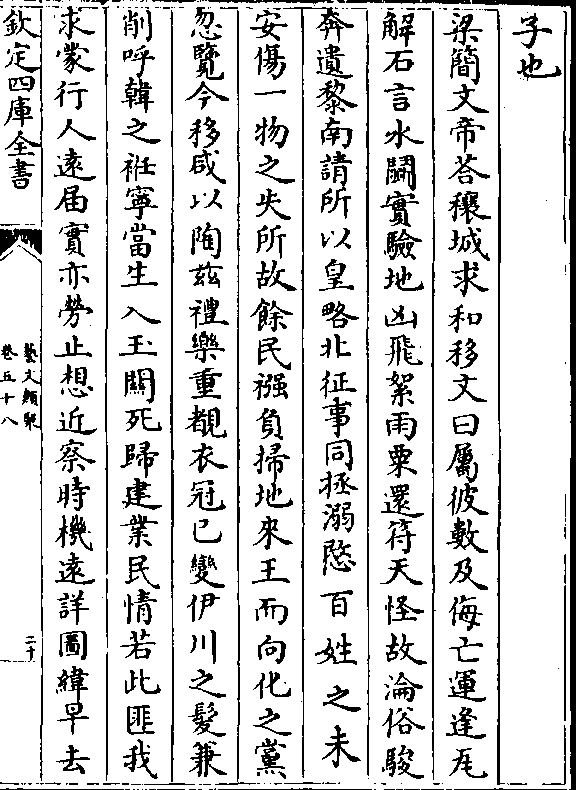 子也
梁簡文帝荅穰城求和移文曰屬彼數及侮亡運逢瓦
解石言水鬭實驗地凶飛絮雨粟還符天怪故淪俗駿
奔遺黎南請所以皇略北征事同拯溺愍百姓之未
安傷一物之失所故餘民襁負掃地來王而向化之黨
忽覽今移咸以陶兹禮樂重覩衣冠已變伊川之髮兼
削呼韓之袵寧當生入玉關死歸建業民情若此匪我
求蒙行人遠届實亦勞止想近察時機遠詳圖緯早去
欽定四庫全書
藝文類聚
卷五十八
二十